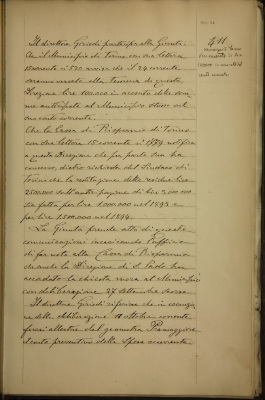 411
Il direttore Goriodi partecipa alla Giunta
che il Municipio di Torino con sua lettera
15 corrente n° 520 avvisa che il 24 corrente
saranno versate alla Tesoreria di questa
Direzione lire 100.000 in acconto delle som-
me anticipate al Municipio stesso sul
suo conto corrente.
Che la Cassa di Risparmio di Torino
con sua lettera 15 corrente n° 1779 notifica
a questa Direzione che per parte sua ha
concesso, dietro richiesta del Sindaco di
Torino che la restituzione delle residue lire
2.500.000 dell'antecipazione di lire 3.000.000
sia fatta per lire 1.000.000 nel 1893 e
per lire 1.500.000 nel 1894.
La Giunta prende atto di queste
comunicazioni incaricando l'ufficio
di far noto alla Cassa di Risparmio
che anche la Direzione di S. Paolo ha
accordato la chiesta mora al Municipio
con deliberazione 27 settembre scorso.
Il direttore Goriodi riferisce che in esecuzio-
ne della deliberazione 18 ottobre corrente
fece allestire dal geometra
conto preventivo della spesa occorrente